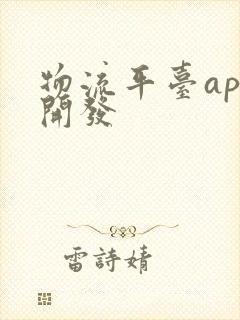 物流平臺ap
開發
雷詩婧